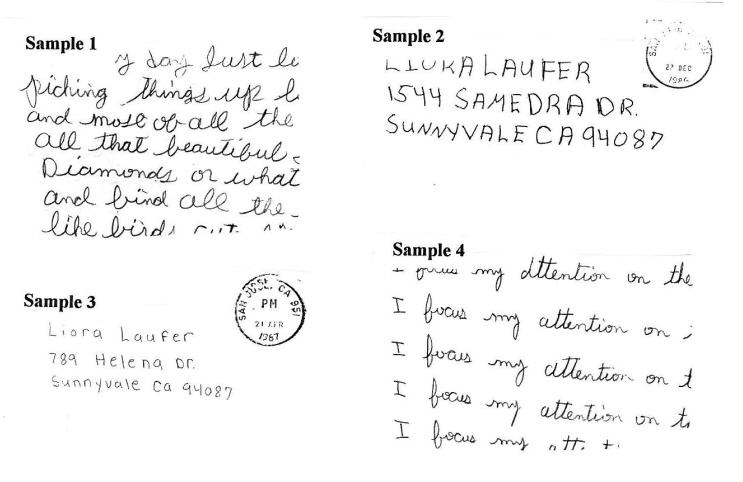 Sample 1
y day Just
piching things up
and most ob all the
all that beautiful
Diamonds or what
and bind all the
like birds
Sample 2
LIORA LAUFER
1544 SAMEDRA DR.
SUNNYVALE CA 94087
27 DEC
1986
Sample 3
Liora Laufer
789 Helena Dr.
Sunnyvale Ca 94087
SAN JOSE, CA 951
PM
21 APR
1987
Sample 4
I focus my attention on the
I focus my attention on
I focus my attention on t
I focus my attention on to
I focus my